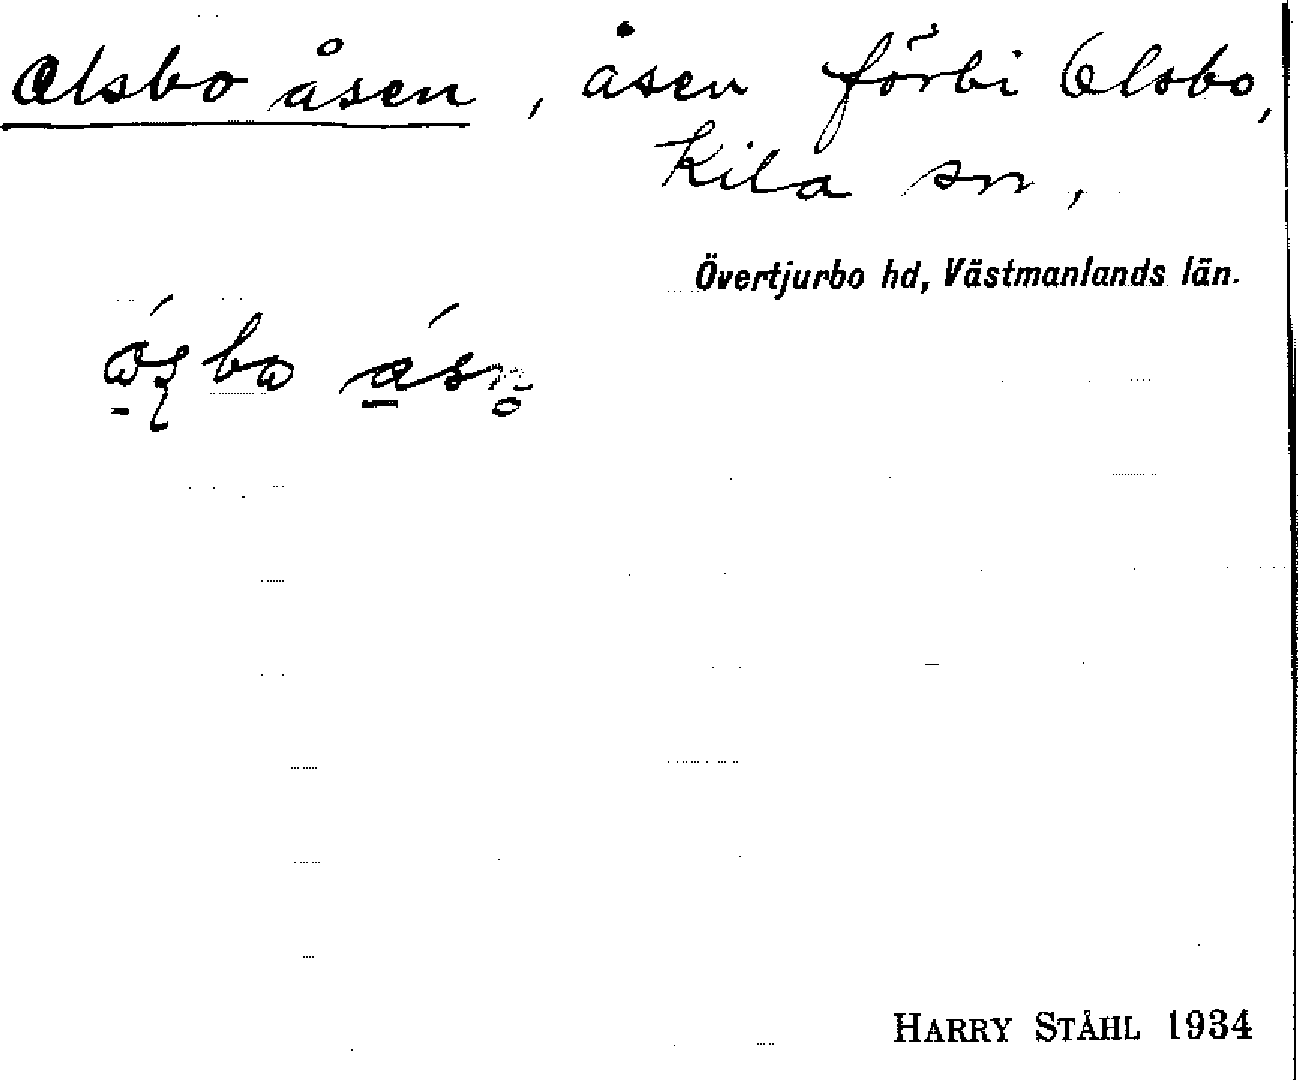 Olsbo åsen, åsen förbi Olsbo,
Kila sn,
Övertjurbo hd, Västmanlands län.
HARRY STÅHL 1934